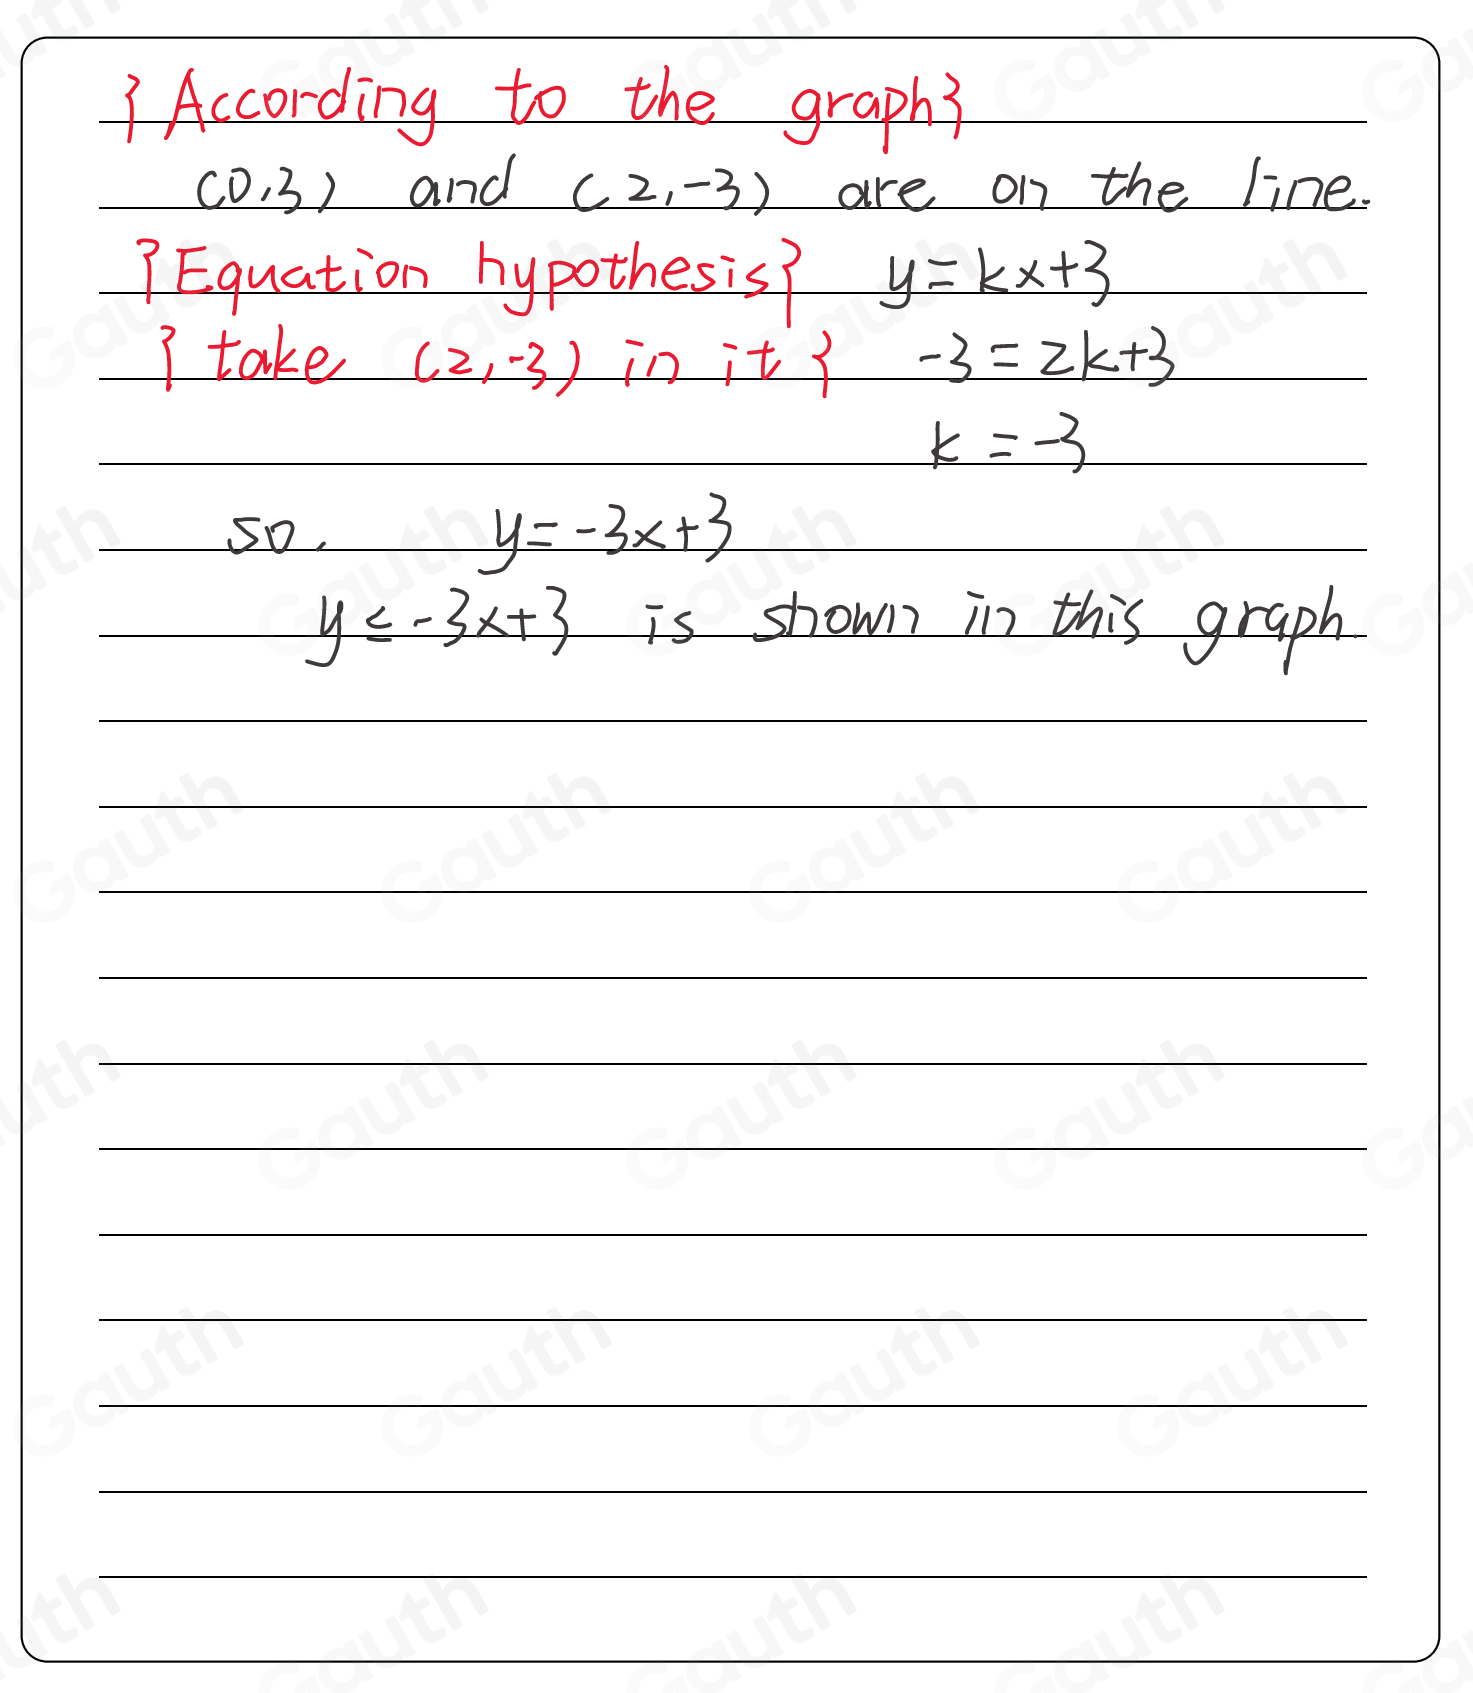 {According to the graph}
(0,3) and (2,-3) are on the line.
{Equation hypothesis} y=kx+3
{take (2,-3) in it} -3=2k+3
k=-3
so, y=-3x+3
y≤-3x+3 is shown in this graph.